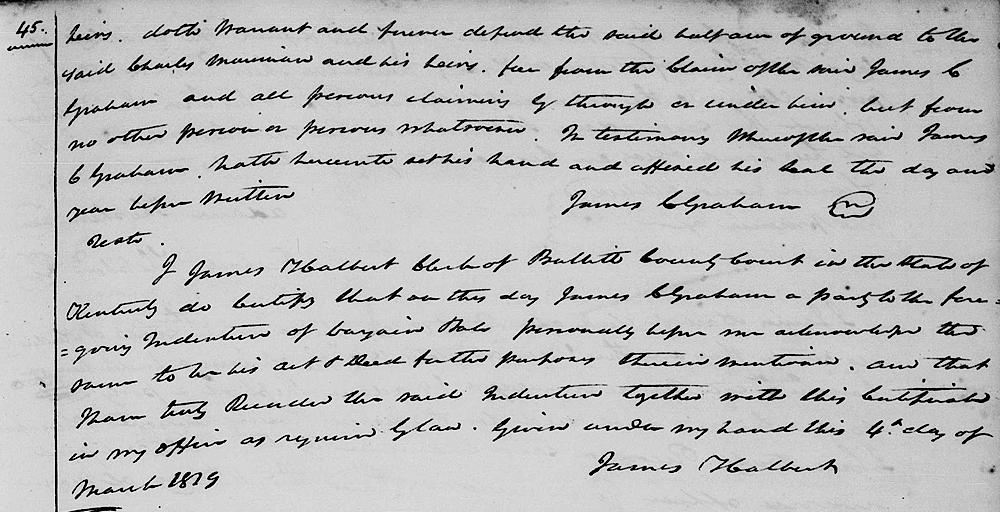 45.
heirs. doth Warrant and forever defend the said half acre of ground to the
said Charles and his heirs. free from the Claim of the said James C
Graham and all persons claiming by through or under him but from
no other person or persons whatsoever. In testimony Whereof the said James
C Graham, hath hereunto set his hand and affixed his Seal the day and
year before Written
James C Graham
Teste.
I James Halbert Clerk of Bullitt County Court in the State of
Kentucky do Certify that on this day James C Graham a party to the fore=
=going Indenture of bargain & Sale personally before me acknowledged the
same to be his act & Deed for the purposes therein mention. and that
I have truly Recorded the said Indenture together with this Certificate
in my office as required by law. Given under my hand this 4th day of
March 1819
James Halbert